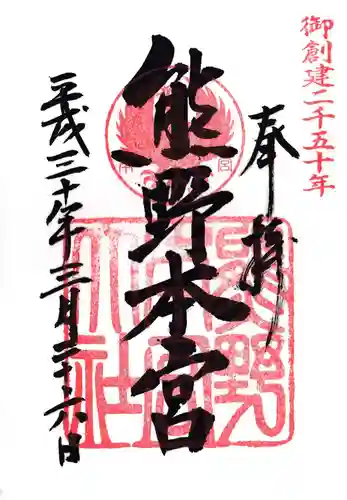 御創建二千五十年
奉拝
熊野本宮
平成三十年三月二十六日
熊野
本宮
大社